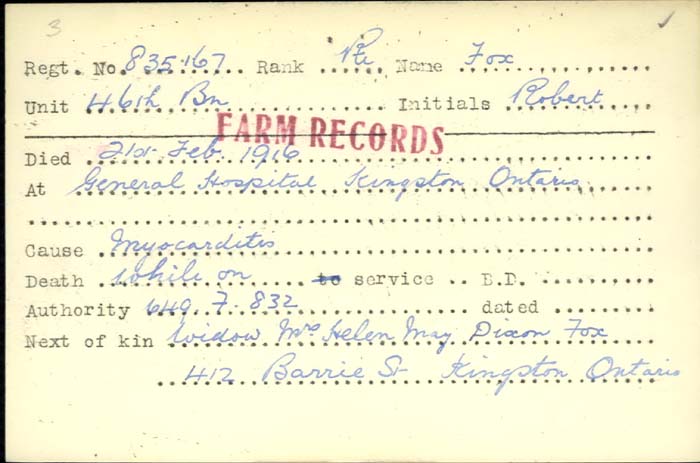 3
Regt. No. 835167 Rank Pte Name Fox
Unit 46th Bn Initials Robert
FARM RECORDS
Died 21st Feb. 1916
At General Hospital Kingston Ontario
Cause Myocarditis
Death while on to service B.D.
Authority 649. F. 832 dated
Next of kin Widow Mrs Helen May Dixon Fox
412 Barrie St Kingston Ontario